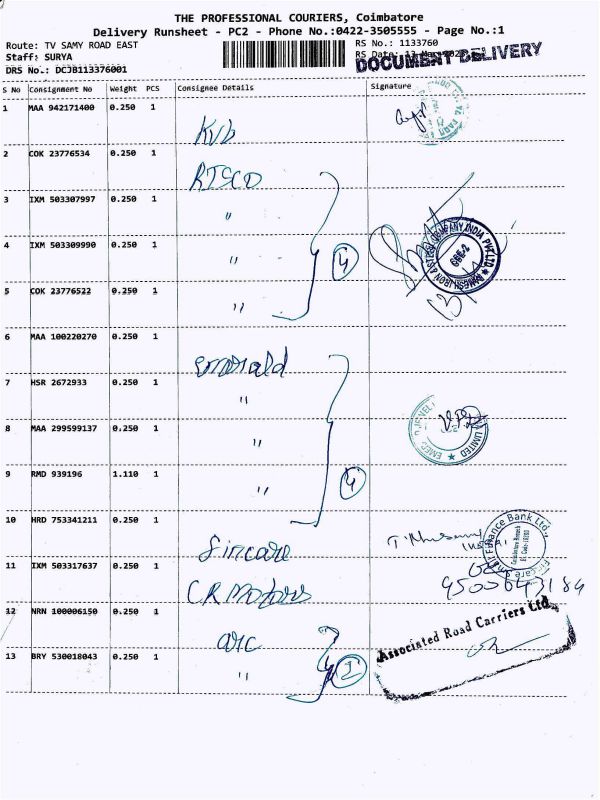 THE PROFESSIONAL COURIERS, Coimbatore
Delivery Runsheet - PC2 - Phone No.:0422-3505555 - Page No.:1
Route: TV SAMY ROAD EAST
RS No.: 1133760
Staff: SURYA
RS Date:
DOCUMENT DELIVERY
DRS No.: DCJB113376001
S No Consignment No Weight PCS Consignee Details Signature
1 MAA 942171400 0.250 1 Kvb
2 COK 23776534 0.250 1
3 IXM 503307997 0.250 1 "
4 IXM 503309990 0.250 1 " 4
5 COK 23776522 0.250 1 "
BANGSH IRON & STEEL COMPANY INDIA PVT LTD
CBE-2
6 MAA 100220270 0.250 1 emerald
7 HSR 2672933 0.250 1 "
8 MAA 299599137 0.250 1 "
9 RMD 939196 1.110 1 " 4
10 HRD 753341211 0.250 1 Fincare
Finance Bank Ltd.
11 IXM 503317637 0.250 1 CR Motors
9500643184
12 NRN 100006150 0.250 1 arc
Associated Road Carriers Ltd.
13 BRY 530018043 0.250 1 "